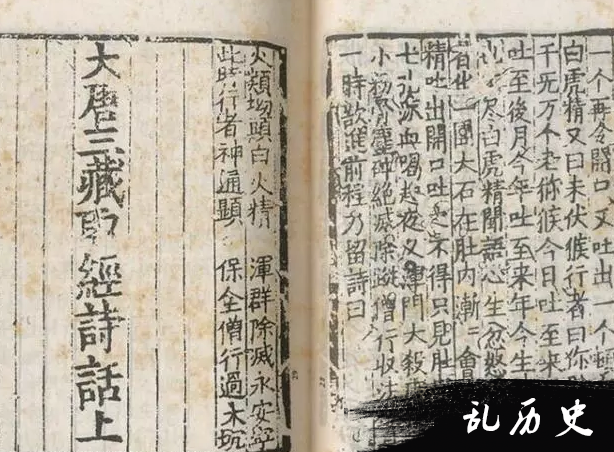 一个再令開口又吐出一个
白虎精又曰未伏猴行者曰你
千无万个老猕猴今日吐至來
吐至後月今年吐至來年今生
尽白虎精聞語心生忿怒
者化一團大石在肚内漸二會
精吐出開口吐之不得只見肚
七孔流血喝起夜叉渾門大殺
小粉骨塵碎絶滅除蹤僧行收法
一時歇進前程乃留詩曰
火類坳頭白火精 渾群除滅永安寧
此時行者神通顯 保全僧行過大坑
大唐三藏取經詩話上
乱历史